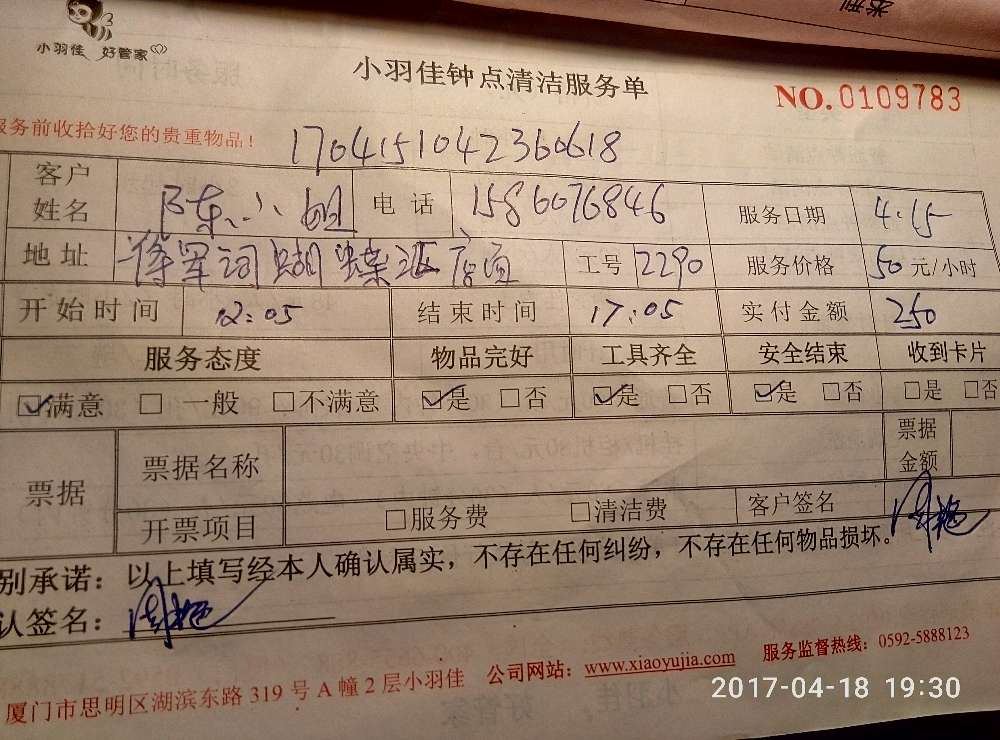 类型
小羽佳 好管家
小羽佳钟点清洁服务单
NO.0109783
服务前收拾好您的贵重物品!
1704151042360618
客户姓名 陈小姐 电话 15860076846 服务日期 4.15
地址 将军祠蝴蝶派店面 工号 2290 服务价格 50 元/小时
开始时间 12:05 结束时间 17:05 实付金额 250
服务态度 物品完好 工具齐全 安全结束 收到卡片
☑满意 □一般 □不满意 ☑是 □否 ☑是 □否 ☑是 □否 □是 □否
票据 票据名称 票据金额
开票项目 □服务费 □清洁费 客户签名
别承诺：以上填写经本人确认属实，不存在任何纠纷，不存在任何物品损坏。
认签名：
厦门市思明区湖滨东路 319 号 A 幢 2 层小羽佳 公司网站：www.xiaoyujia.com 服务监督热线：0592-5888123
2017-04-18 19:30